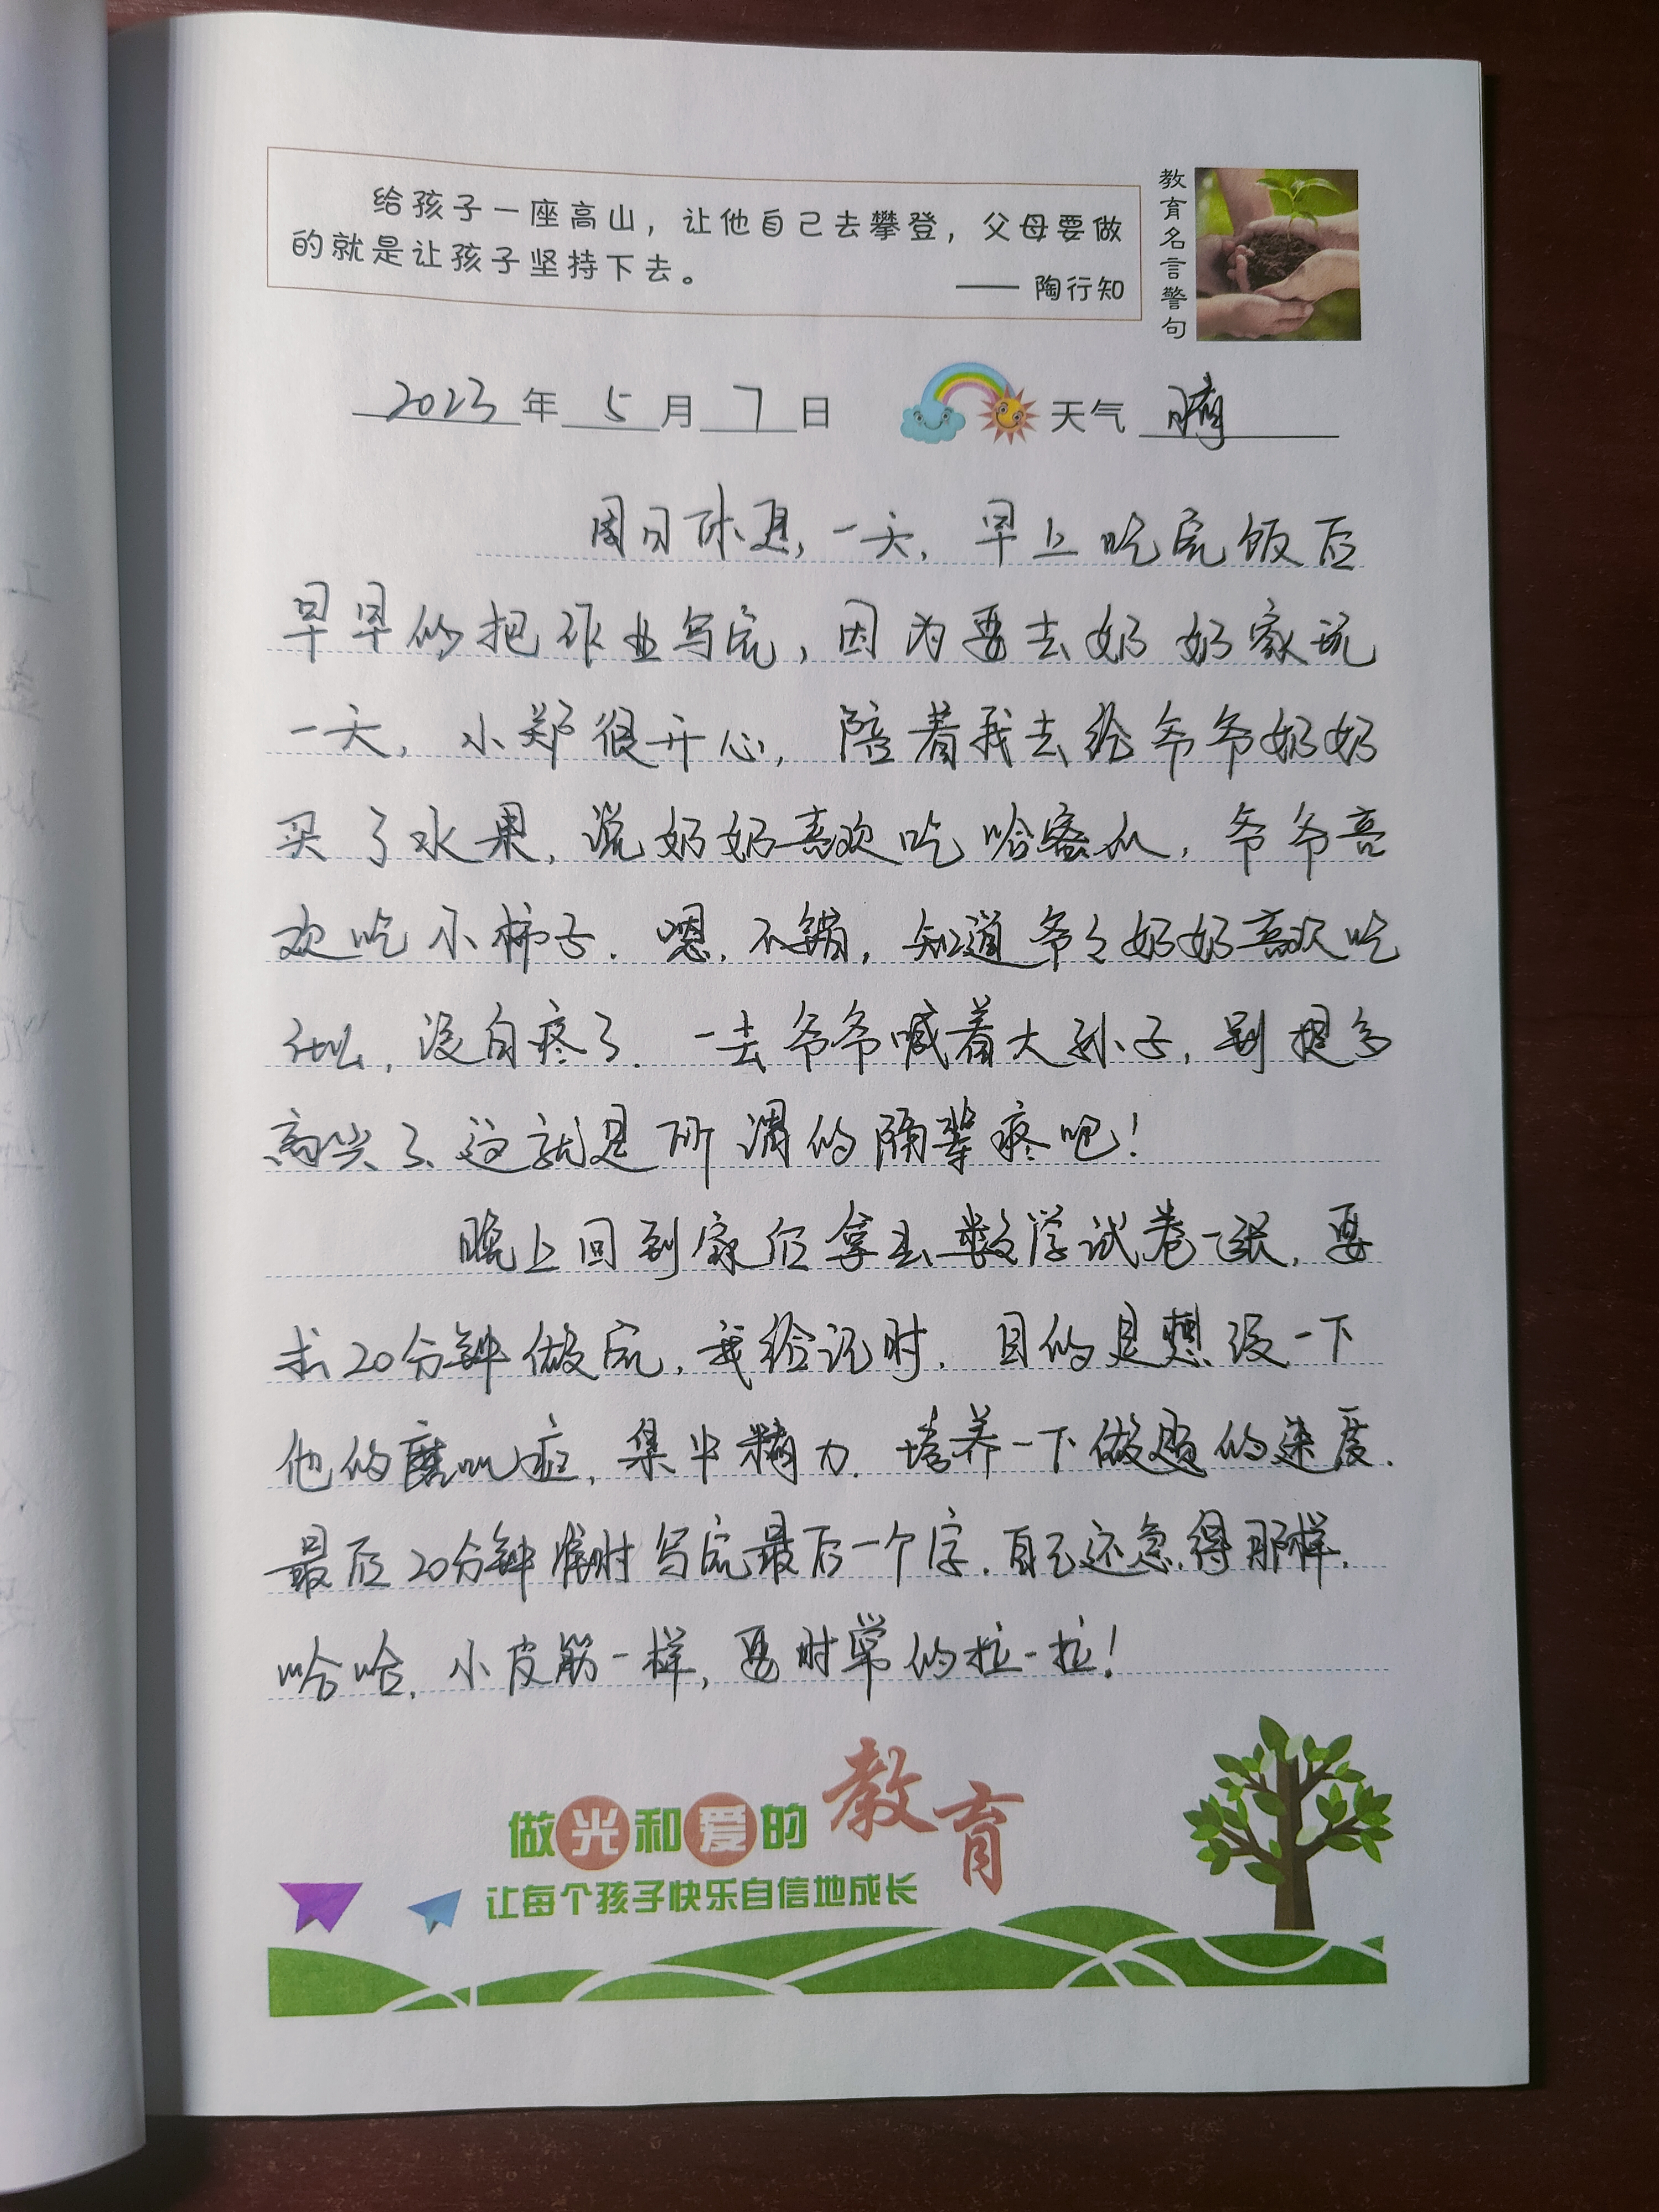 给孩子一座高山，让他自己去攀登，父母要做
的就是让孩子坚持下去。
—— 陶行知
教育名言警句
2023年 5月 7日 天气 晴
周日休息，一天，早上吃完饭后
早早的把作业写完，因为要去奶奶家玩
一天，小郑很开心，陪着我去给爷爷奶奶
买了水果，说奶奶喜欢吃哈密瓜，爷爷喜
欢吃小柿子．嗯，不错，知道爷々奶奶喜欢吃
什么，没白疼了．一去爷爷喊着大孙子，别提多
高兴了、这就是所谓的隔辈疼吧！
晚上回到家后拿出数学试卷一张，要
求20分钟做完，我给记时．目的是想缓一下
他的磨叽症，集中精力．培养一下做题的速度．
最后20分钟准时写完最后一个字．自己还急得那样．
哈哈，小皮筋一样，要时常的拉一拉！
做光和爱的教育
让每个孩子快乐自信地成长